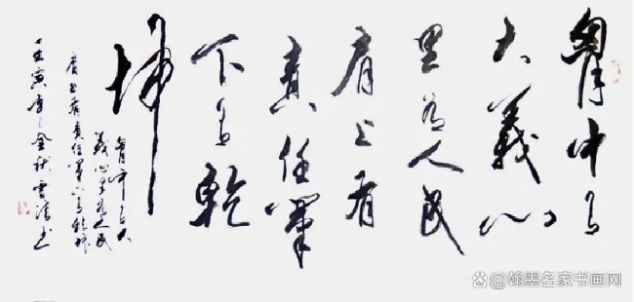 胷中有
大義心
里有人民
肩上有
責任筆
下有乾
坤
胷中有大
義心里有人民
肩上有責任筆下有乾坤
壬寅年之金秋雪
@瀚墨名家书画网